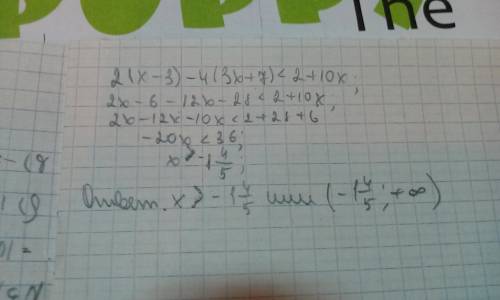 The
2(x-3)-4(3x+7)<2+10x;
2x-6-12x-28<2+10x;
2x-12x-10x<2+28+6
-20x<36;
x>-1 4/5;
Ответ. x>-1 4/5 или (-1 4/5; +∞)